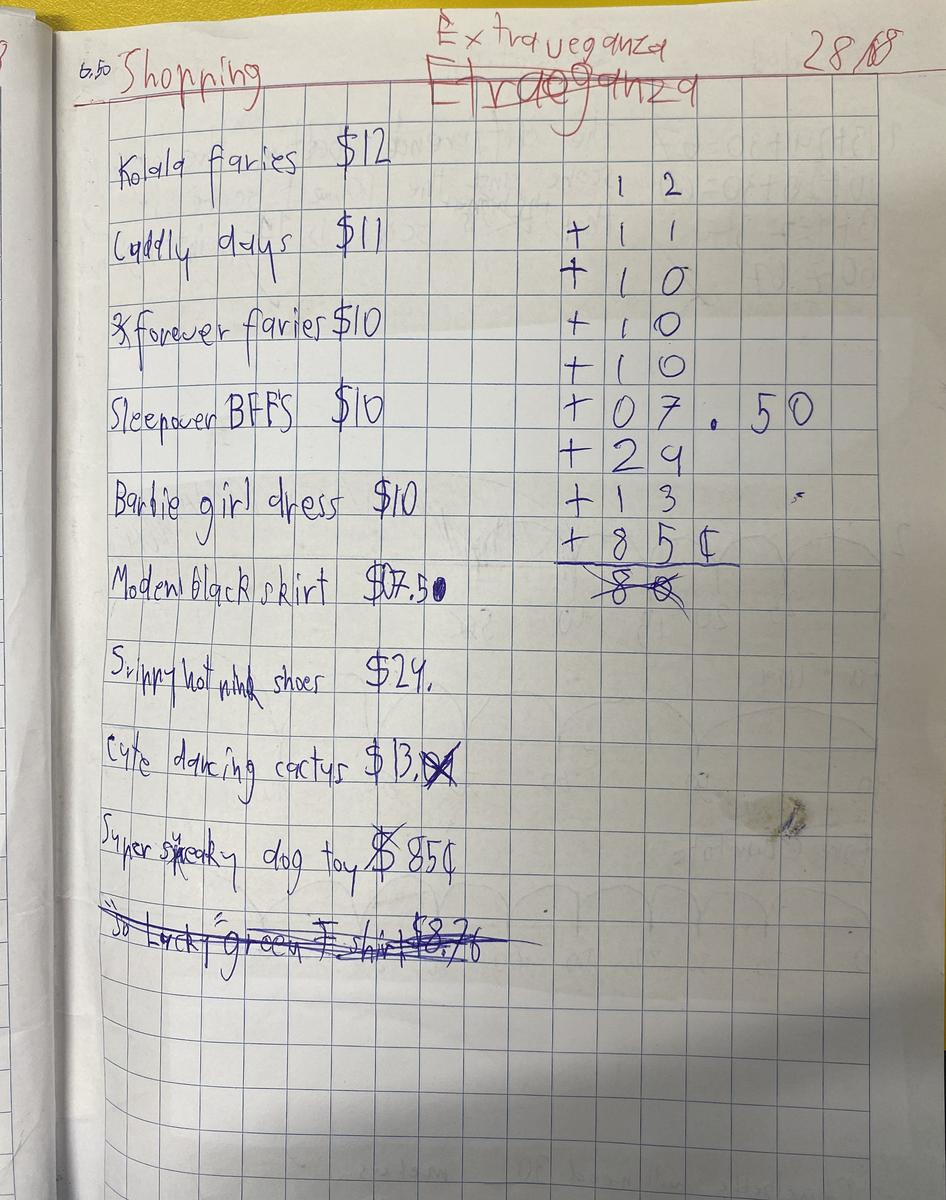 6.50 Shopping Extraveganza 28/8
Etraeganza
Kolala faries $12
1 2
Cuddly days $11
+ 1 1
+ 1 0
forever faries $10
+ 1 0
+ 1 0
Sleepover BFF'S $10
+ 0 7 . 5 0
+ 2 9
Barbie girl dress $10
+ 1 3
+ 8 5 ¢
Moden black skirt $07.50
8 0
hot pink shoes $29.
Cute dancing cactus $13.
Super sqeaky dog toy $ 85¢
"So Lucky" green T shirt $8.76